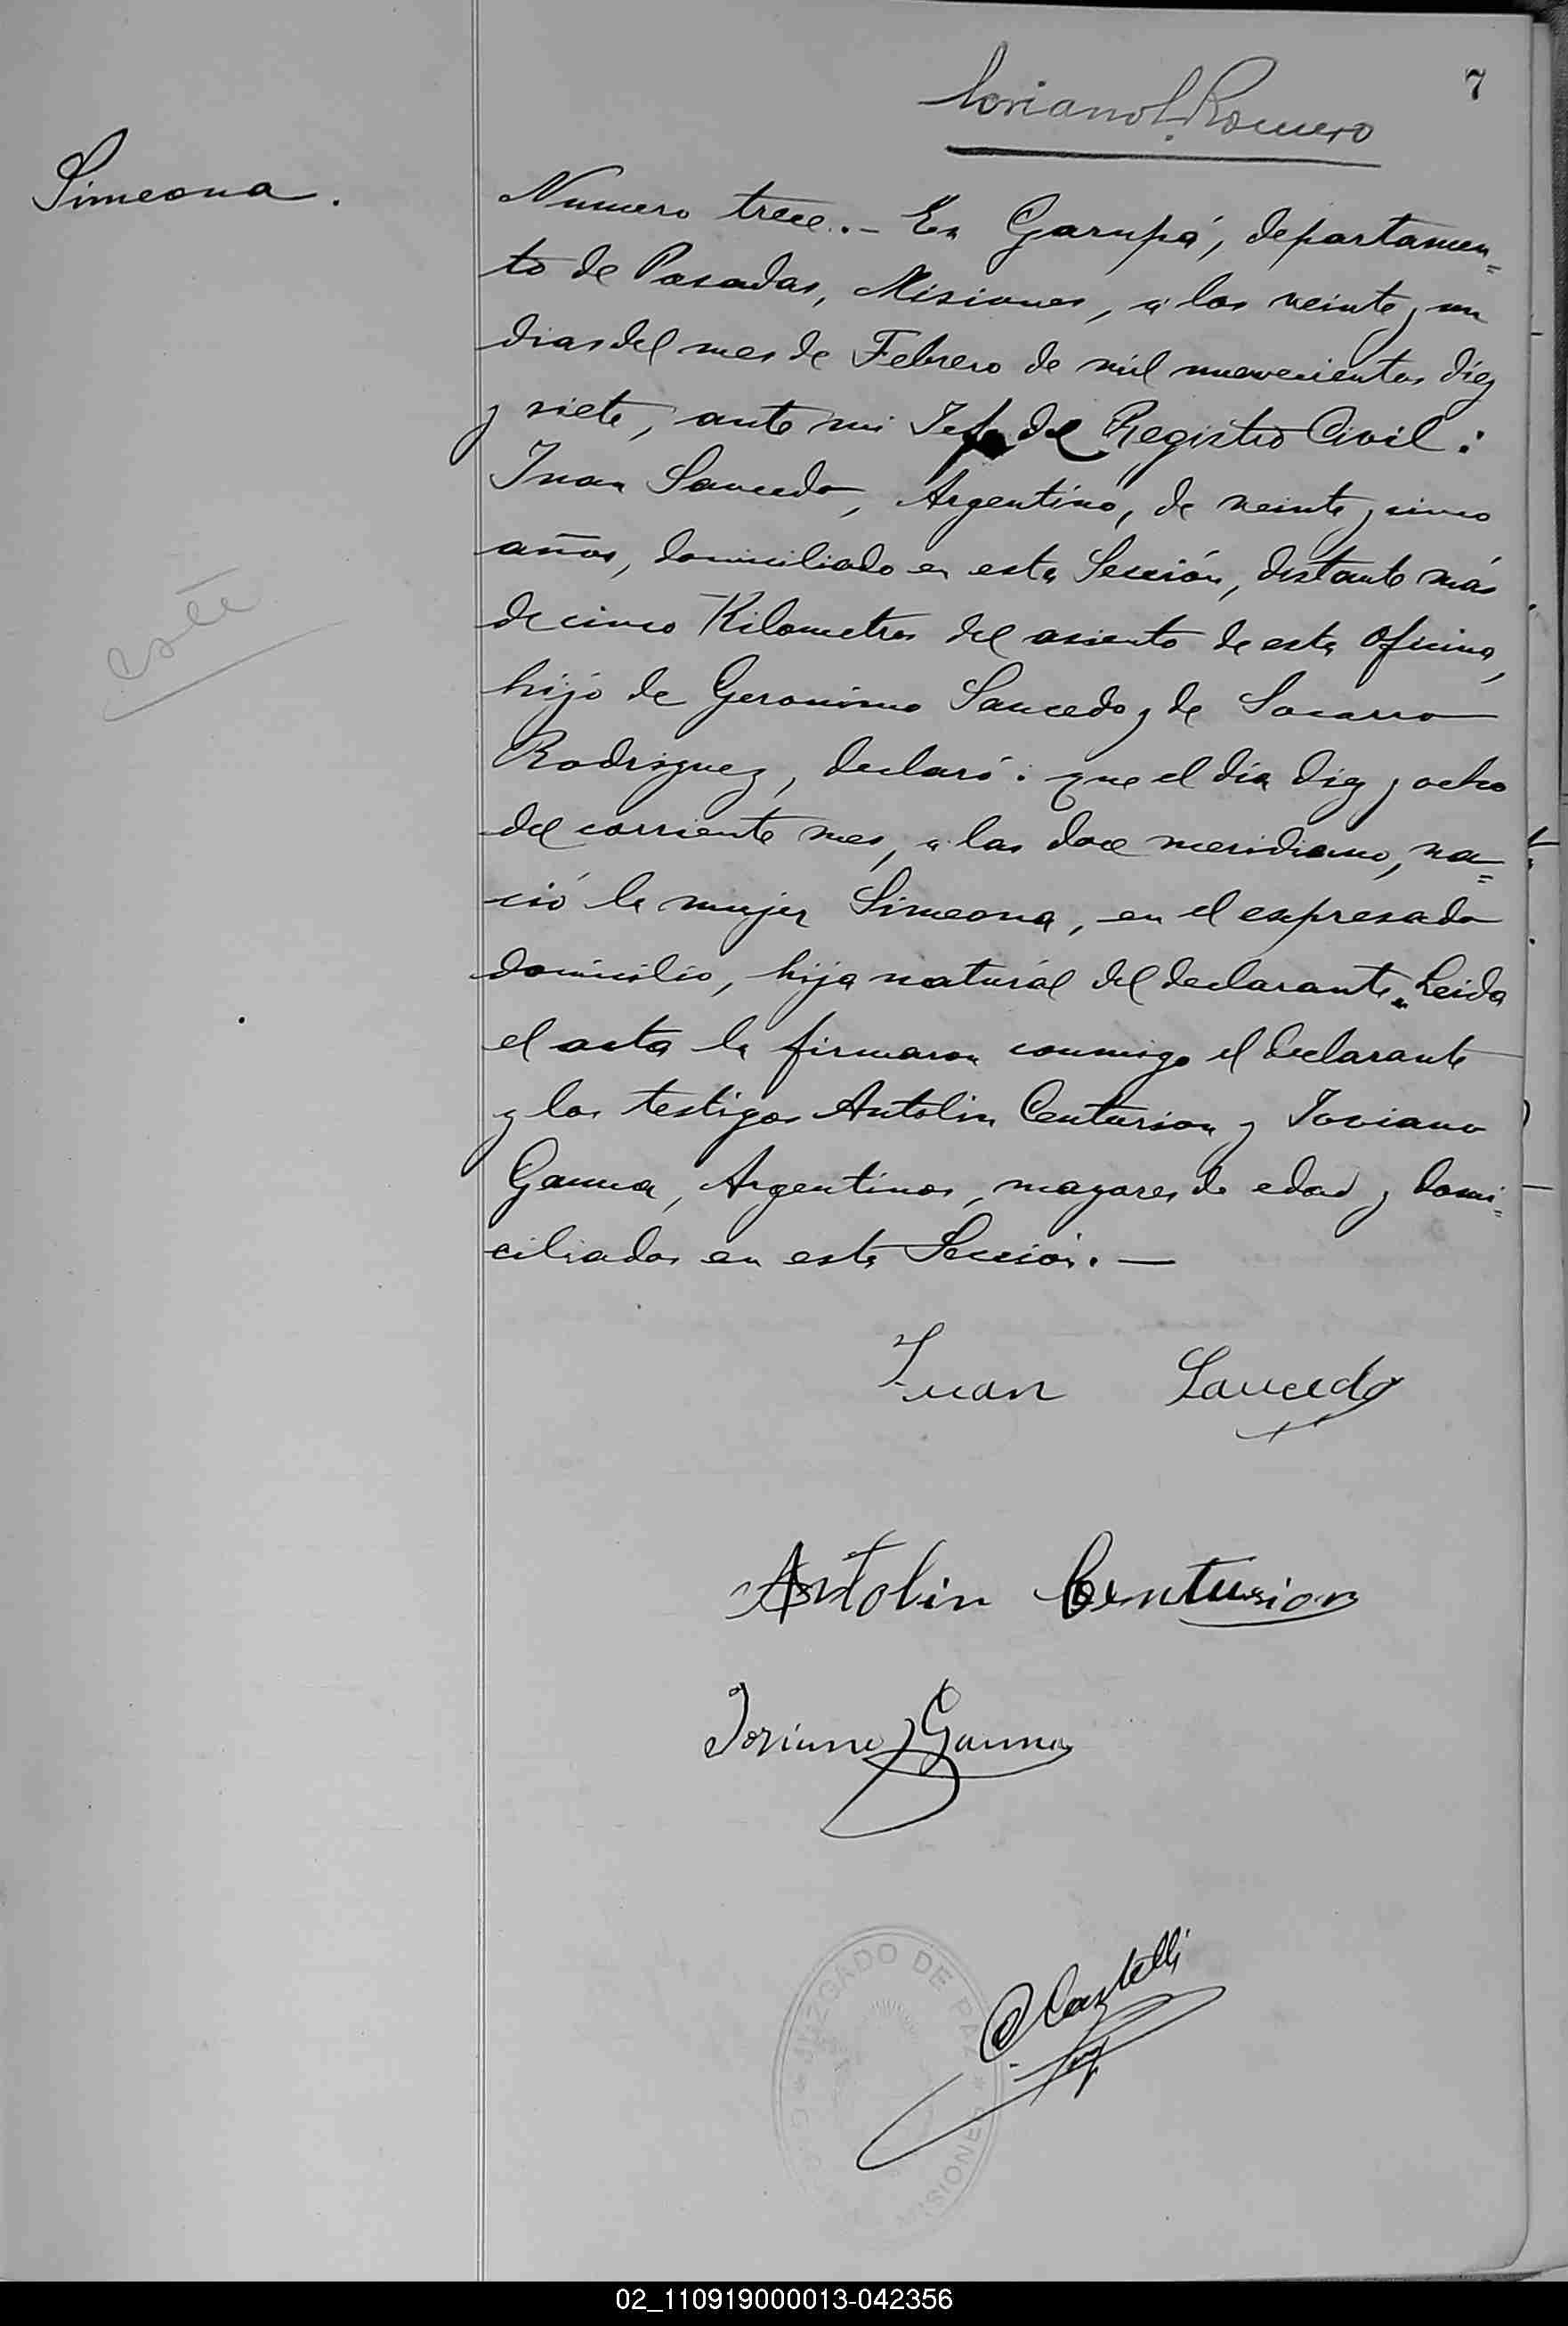 7
Soriano L. Romero
Simeona.
Numero trece.- En Garupá, departamen=
to de Posadas, Misiones, a los veinte y un
dias del mes de Febrero de mil novecientos diez
y siete, ante mi Jefe del Registro Civil:
Juan Saucedo, Argentino, de veinte y cinco
años, domiciliado en esta Sección, distante más
de cinco Kilometros del asiento de esta Oficina,
hijo de Geronimo Saucedo y de Socorro
Rodriguez, declaró: que el día diez y ocho
del corriente mes, a las doce meridiano, na=
ció la mujer Simeona, en el expresado
domicilio, hija natural del declarante. Leida
el acta la firmaron conmigo el declarante
y los testigos Antolin Centurion y Joviano
Gauna, Argentinos, mayores de edad y domi=
ciliados en esta Sección.—
Juan Saucedo
Antolin Centurion
Joviano Gauna
Castelli
JUZGADO DE PAZ
02_110919000013-042356